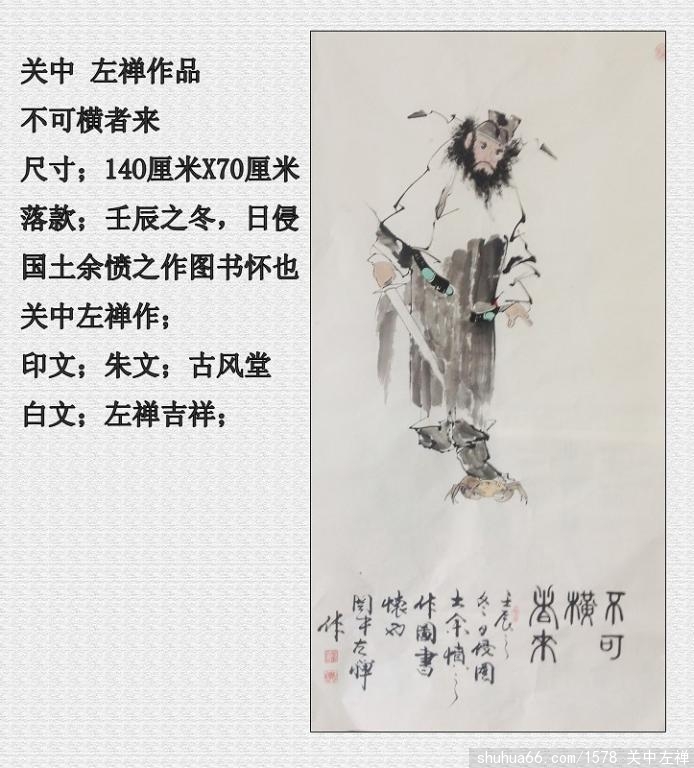 关中 左禅作品
不可横者来
尺寸；140厘米X70厘米
落款；壬辰之冬，日侵
国土余愤之作图书怀也
关中左禅作；
印文；朱文；古风堂
白文；左禅吉祥；
不可
橫
者来
壬辰之
冬日侵國
土余憤之
作圖書
懷也
関中左禅
作
shuhua66.com/1578 关中左禅